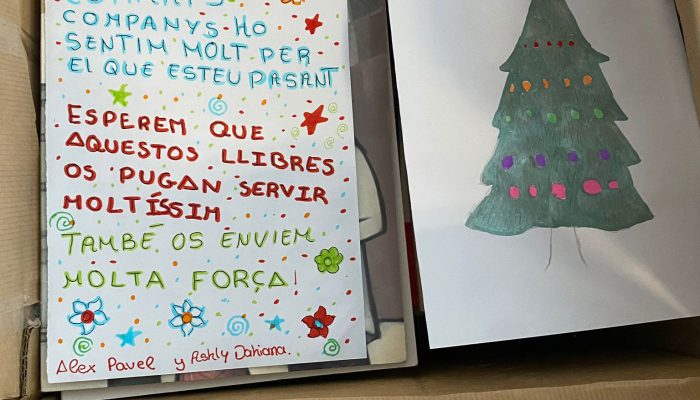 COMPANYS HO
SENTIM MOLT PER
El QUE ESTEU PASANT
ESPEREM QUE
AQUESTOS LLIBRES
OS PUGAN SERVIR
MOLTÍSSIM
TAMBÉ OS ENVIEM
MOLTA FORÇA!
Alex Pavel y Ashly Dahiana.